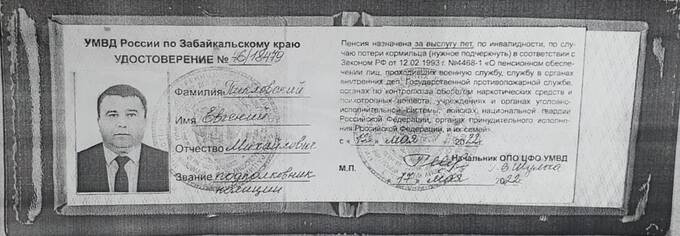 УМВД России по Забайкальскому краю
УДОСТОВЕРЕНИЕ № 76/18479
Фамилия
Имя Евгений
Отчество Михайлович
Звание подполковник
полиции
Пенсия назначена за выслугу лет, по инвалидности, по слу-
чаю потери кормильца (нужное подчеркнуть) в соответствии с
Законом РФ от 12.02.1993 г. №4468-1 «О пенсионном обеспе-
чении лиц, проходивших военную службу, службу в органах
внутренних дел, Государственной противопожарной службе,
органах по контролю за оборотом наркотических средств и
психотропных веществ, учреждениях и органах уголовно-
исполнительной системы, войсках национальной гвардии
Российской Федерации, органах принудительного исполне-
ния Российской Федерации, и их семей».
с «12» мая 2022
Начальник ОПО ЦФО УМВД
М.П.
17 мая 2022